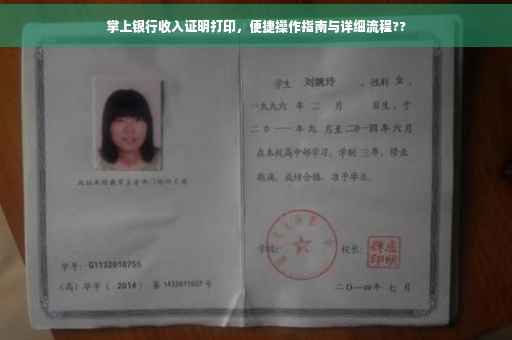 掌上银行收入证明打印，便捷操作指南与详细流程??
学号：G1132010755
（高）毕字（ 2014 ）第 1432011007 号
学生 刘婉玲 ，性别 女 ，
一九九六 年 二 月 日生，于
二0一一年九 月至二0一四年六月
在本校高中部学习，学制 三年，修业
期满，成绩合格，准予毕业。
学校：
校长：
二〇一四年 七 月